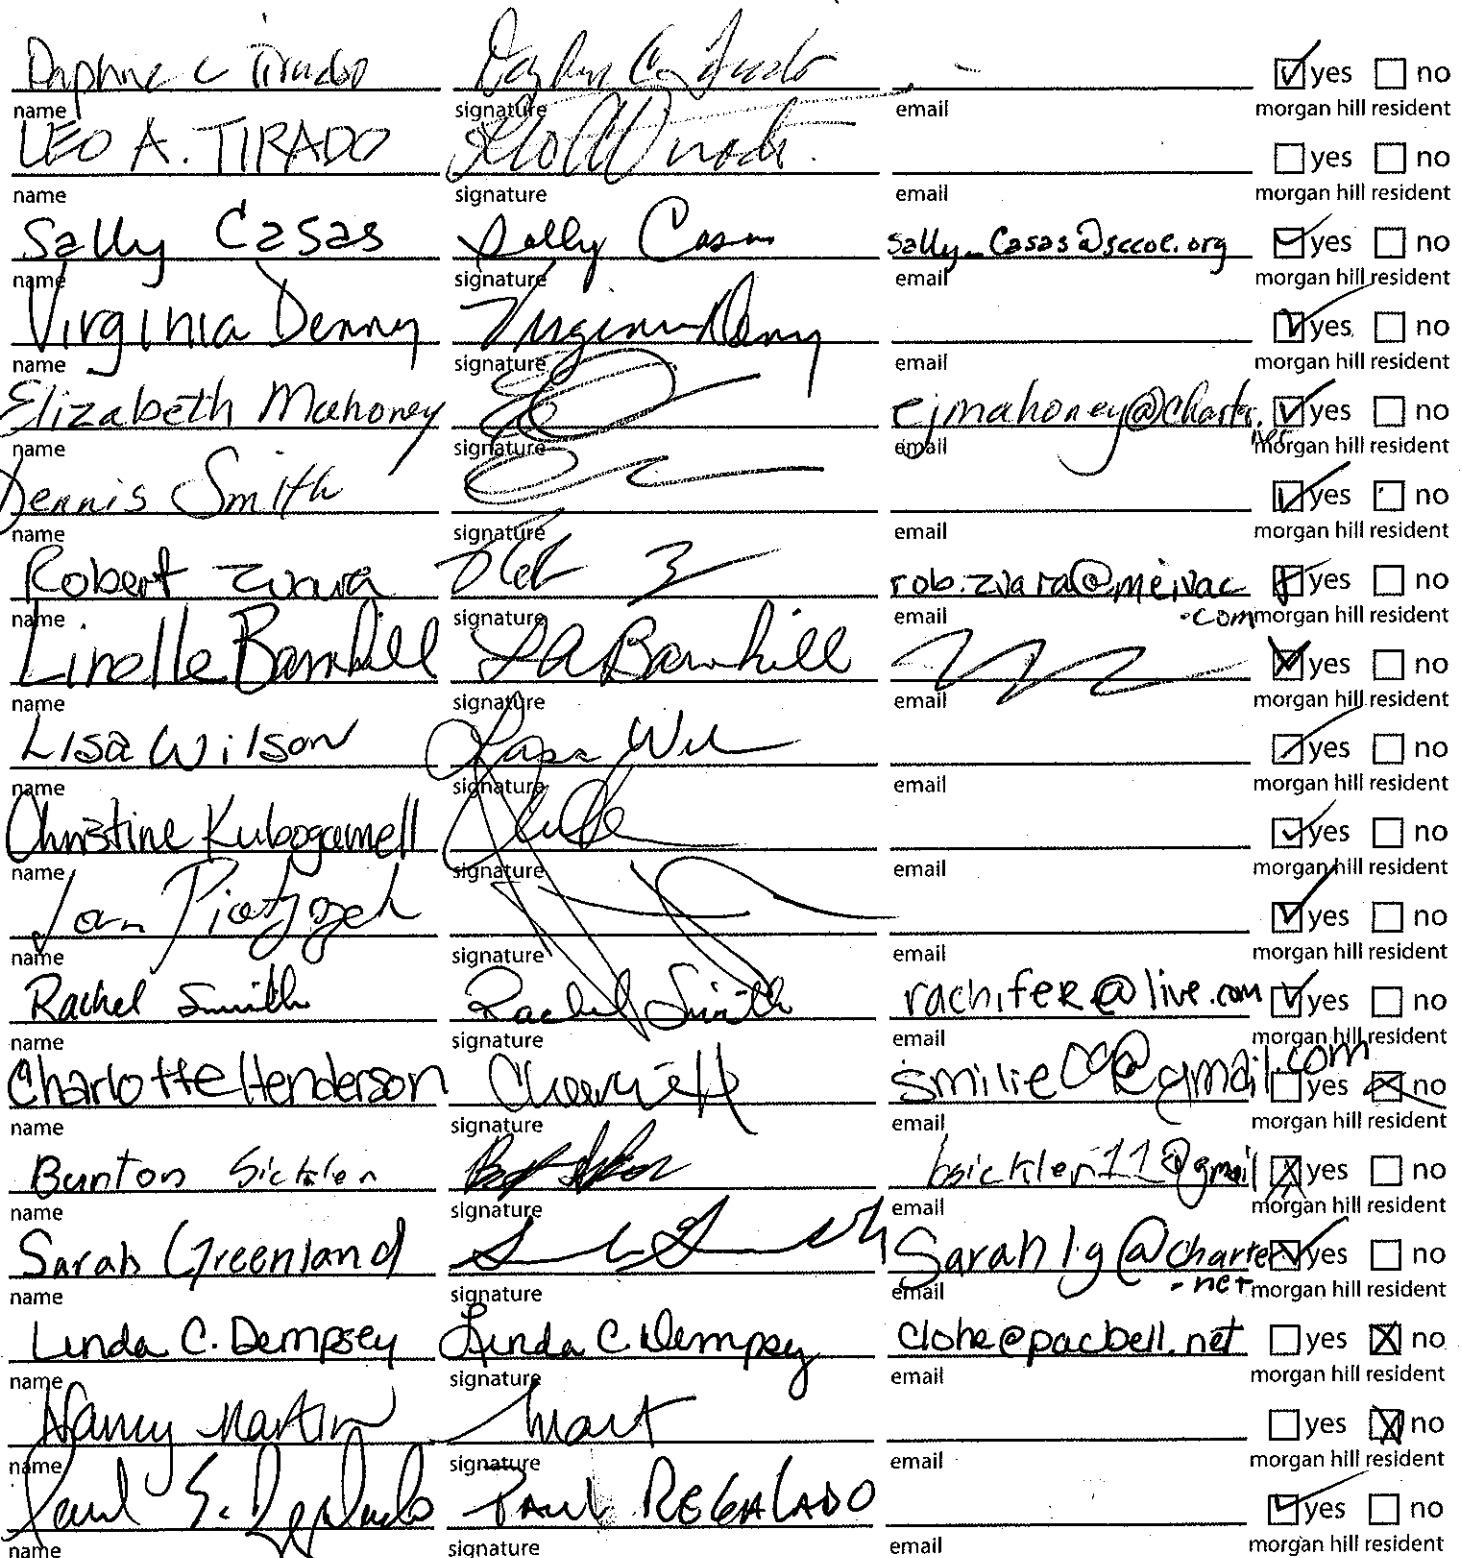 Daphne C Tirado Daphne C. Tirado yes no
name signature email morgan hill resident
LEO A. TIRADO yes no
name signature email morgan hill resident
Sally Casas Sally Casas sally_casas@sccoe.org yes no
name signature email morgan hill resident
Virginia Denny Virginia Denny yes no
name signature email morgan hill resident
Elizabeth Mahoney ejmahoney@charter. yes no
name signature email net morgan hill resident
Dennis Smith yes no
name signature email morgan hill resident
Robert Zvara rob.zvara@meivac yes no
name signature email .com morgan hill resident
Linelle Barnhill LA Barnhill yes no
name signature email morgan hill resident
Lisa Wilson yes no
name signature email morgan hill resident
Christine Kubogamell yes no
name signature email morgan hill resident
yes no
name signature email morgan hill resident
Rachel Smith Rachel Smith rachifer@live.com yes no
name signature email morgan hill resident
Charlotte Henderson yes no
name signature email morgan hill resident
Burton Sickler bsickler11@gmail yes no
name signature email morgan hill resident
Sarah Greenland Sarahlg@charter yes no
name signature email .net morgan hill resident
Linda C. Dempsey Linda C. Dempsey clohe@pacbell.net yes no
name signature email morgan hill resident
Nancy Martin Mart yes no
name signature email morgan hill resident
Paul S. Regalado PAUL REGALADO yes no
name signature email morgan hill resident